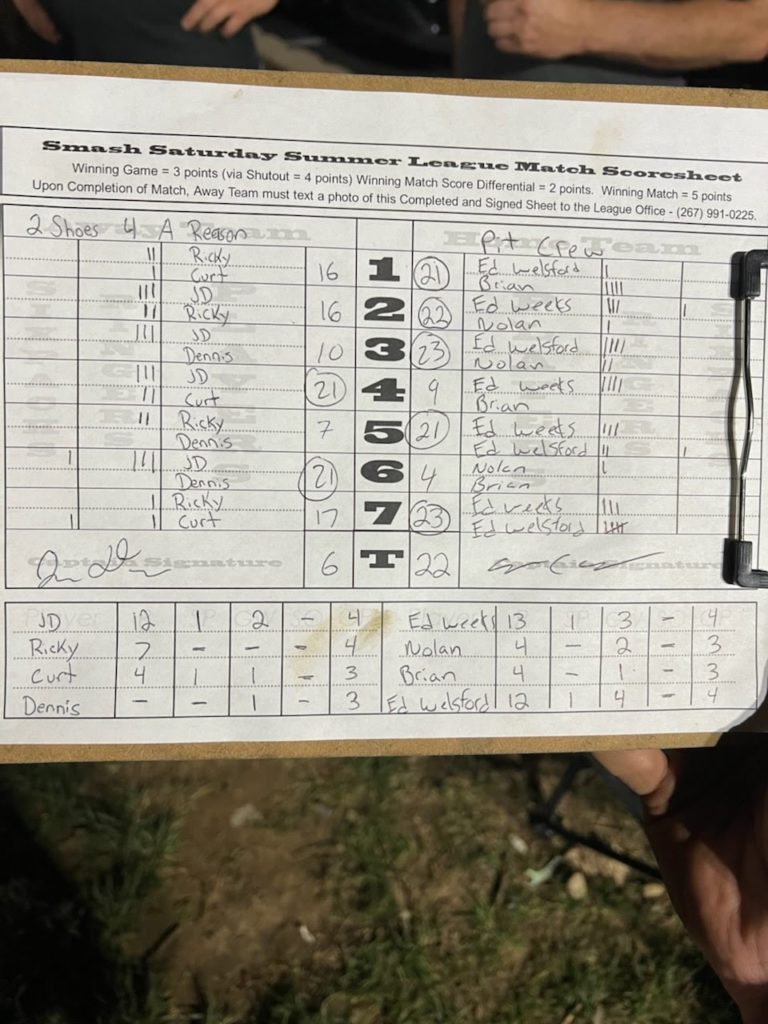 Smash Saturday Summer League Match Scoresheet
Winning Game = 3 points (via Shutout = 4 points) Winning Match Score Differential = 2 points. Winning Match = 5 points
Upon Completion of Match, Away Team must text a photo of this Completed and Signed Sheet to the League Office - (267) 991-0225.
2 Shoes 4 A Reason Pit Crew
|| Ricky 16 1 21 Ed Welsford |
| Curt Brian ||||
||| JD 16 2 22 Ed Weeks ||| |
|| Ricky Nolan |
||| JD 10 3 23 Ed Welsford ||||
Dennis Nolan ||
||| JD 21 4 9 Ed weeks ||||
|| Curt Brian
|| Ricky 7 5 21 Ed Weeks |||
Dennis Ed Welsford || |
| ||| JD 21 6 4 Nolan |
Dennis Brian
| Ricky 17 7 23 Ed weeks |||
| | Curt Ed Welsford ||||
Captain Signature 6 T 22 Captain Signature
JD 12 1 2 - 4 Ed weeks 13 1 3 - 4
Ricky 7 - - - 4 Nolan 4 - 2 - 3
Curt 4 1 1 - 3 Brian 4 - 1 - 3
Dennis - - 1 - 3 Ed Welsford 12 1 4 - 4